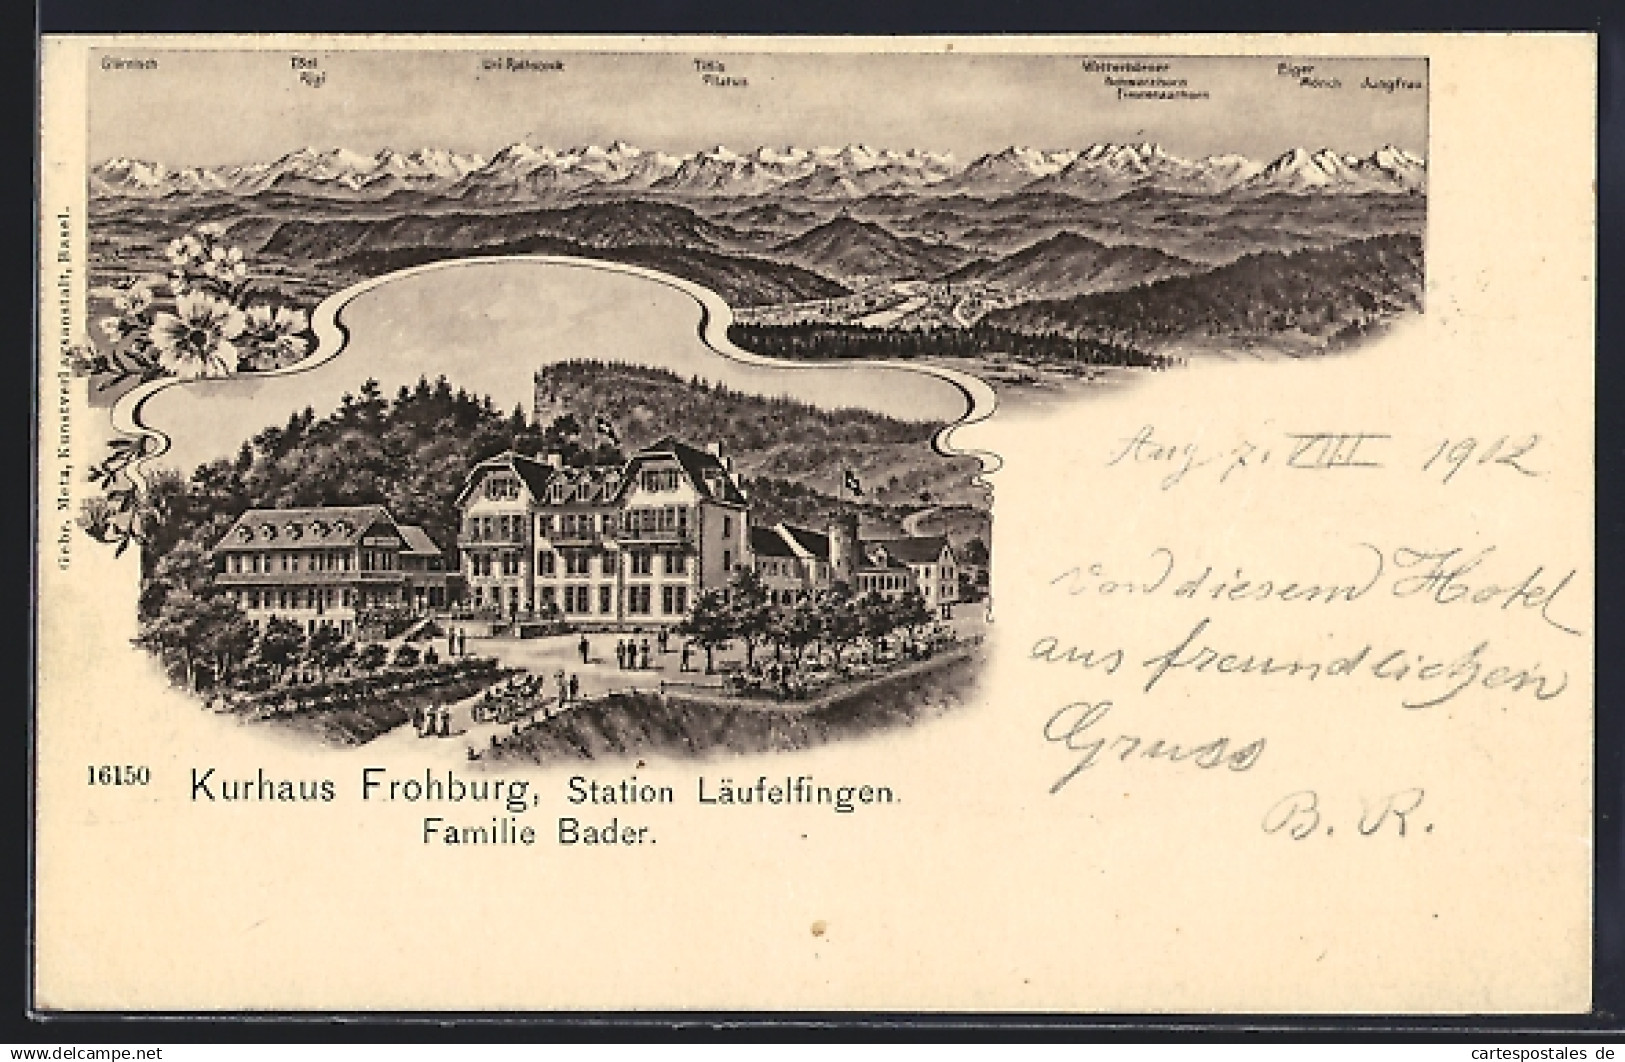 Glärnisch Tödi Uri Rothstock Titlis Wetterhörner Eiger
Rigi Pilatus Schreckhorn Mönch Jungfrau
Finsteraarhorn
Gebr. Metz, Kunstverlagsanstalt, Basel.
Aug 7. VIII 1902
von diesem Hotel
aus freundlichen
Gruss
B. R.
16150 Kurhaus Frohburg, Station Läufelfingen.
Familie Bader.
delcampe.net
cartespostales de